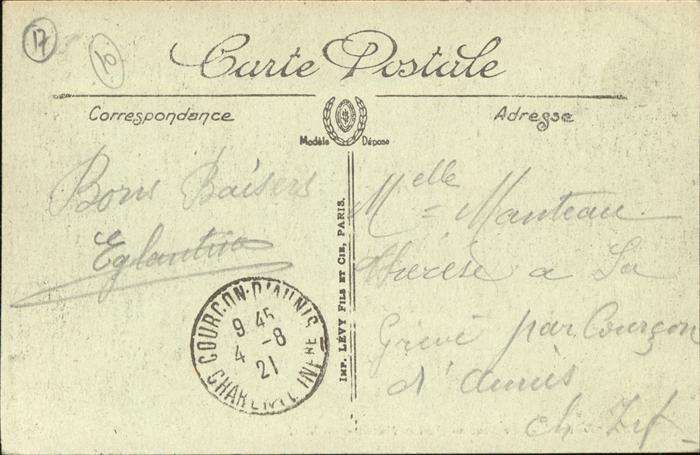 17
Carte Postale
Correspondance
Adresse
Modèle Déposé
Bons Baisers
Eglantine
Melle Manteau
therese a La
Grève par Courçon
d'aunis
ch. Inf
IMP. LÉVY FILS ET CIE, PARIS.
COURÇON-D'AUNIS
9 45
4 -8
21
CHARENTE INFRE